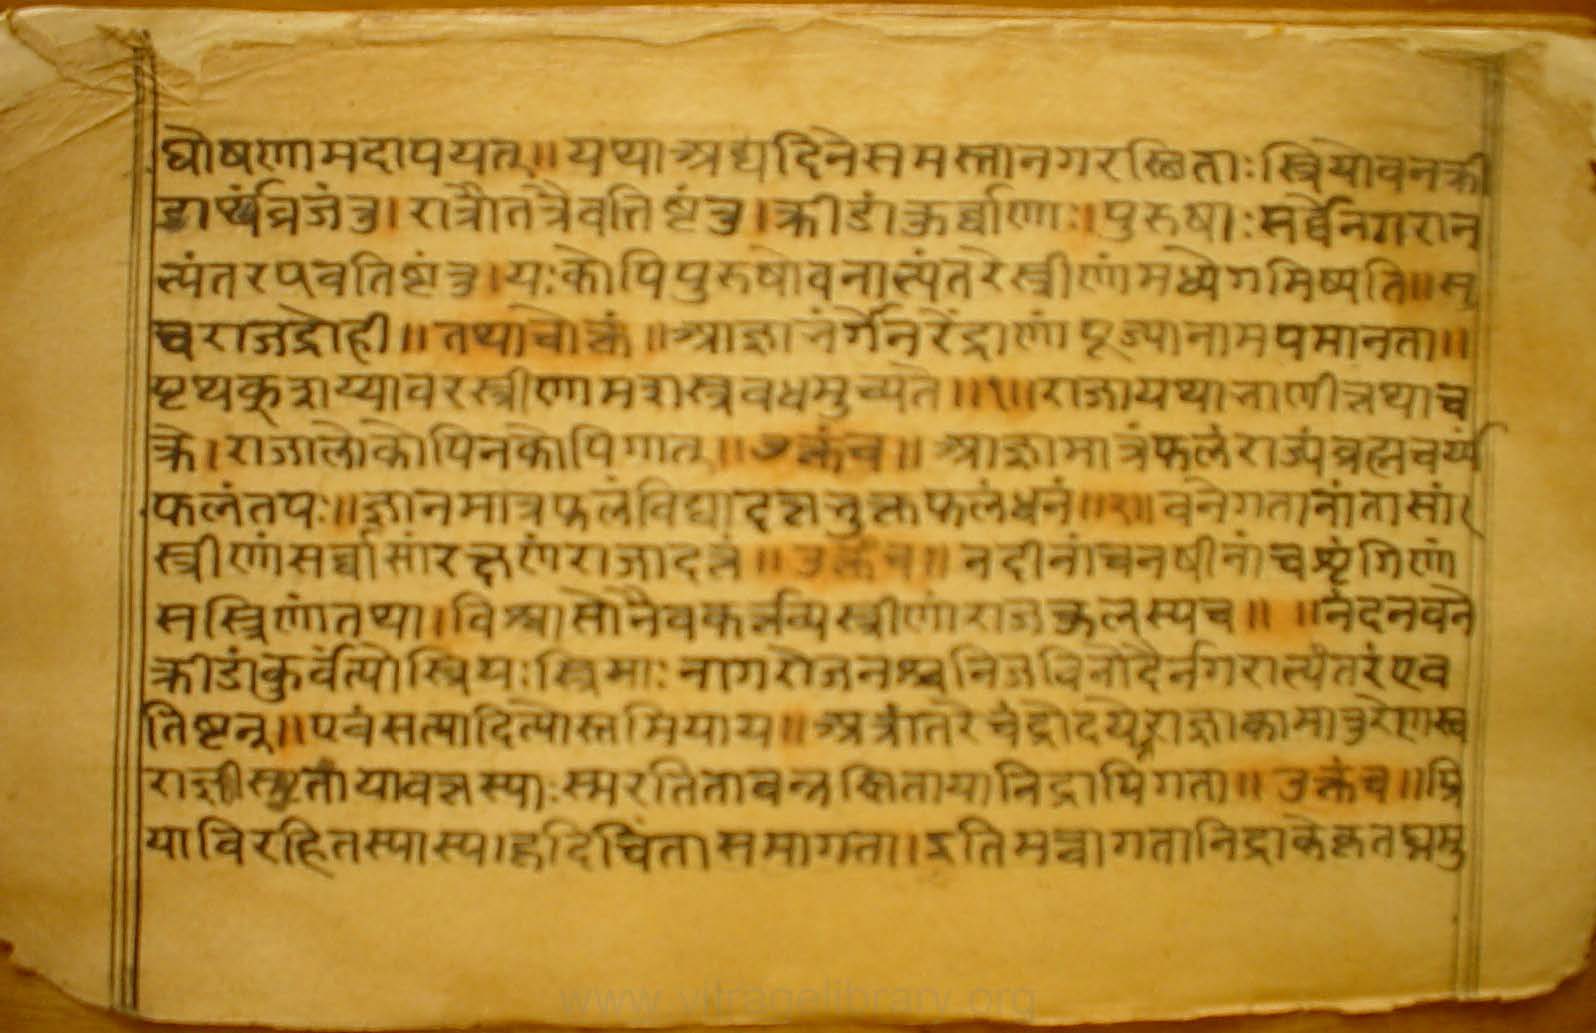 घोषणामदापयत्॥यथाअद्यदिनेसमस्तानगरस्थिताःस्त्रियोवनक्री
डार्थंव्रजंतु।रात्रौतत्रैवतिष्टंतु।क्रीडांकुर्वाणाः।पुरुषाःसर्वेनगरान
त्यंतरएवतिष्टंतु।यःकोपिपुरुषोवनात्यंतरेस्त्रीणांमध्येगमिष्यति॥स
चराजद्रोही॥तथाचोक्तं॥आज्ञाभंगोनरेंद्राणांपूज्यानामपमानता॥
पृथक्शय्यावरस्त्रीणामशस्त्रवधमुच्यते॥१॥राज्ञायथाभाणीत्तथाच
क्रे।राजालोकोपिनकोपिगात्॥उक्तंच॥आज्ञामात्रंफलंराज्यंब्रह्मचर्य्य
फलंतपः॥ज्ञानमात्रफलंविद्यादत्तभुक्तफलंधनं॥२॥वनेगतानांतासां
स्त्रीणांसर्वासांरक्षणंराजादत्तं॥उक्तंच॥नदीनांचनषीनांचशृंगिणां
सस्त्रिणांतथा।विश्वासोनैवकर्त्तव्यस्त्रीणांराजकुलस्यच॥ ॥नंदनवने
क्रीडांकुर्वंत्योस्त्रियःस्छिमाः नागरोजनश्चनिजविनोदैर्नगरात्यंतरंएव
तिष्टन्॥एवंसत्यादित्योस्तमियाय॥अत्रांतरेचंद्रोदयेराज्ञाकामातुरेणस्व
राज्ञीस्मृतायावत्तस्याःस्मरतितावन्नक्षितायानिद्रापिगता॥उक्तंच॥प्रि
याविरहितस्यास्यहृदिचिंतासमागता॥इतिमत्वागतानिद्राकेकृतघ्नमु
www.vitragelibrary.org